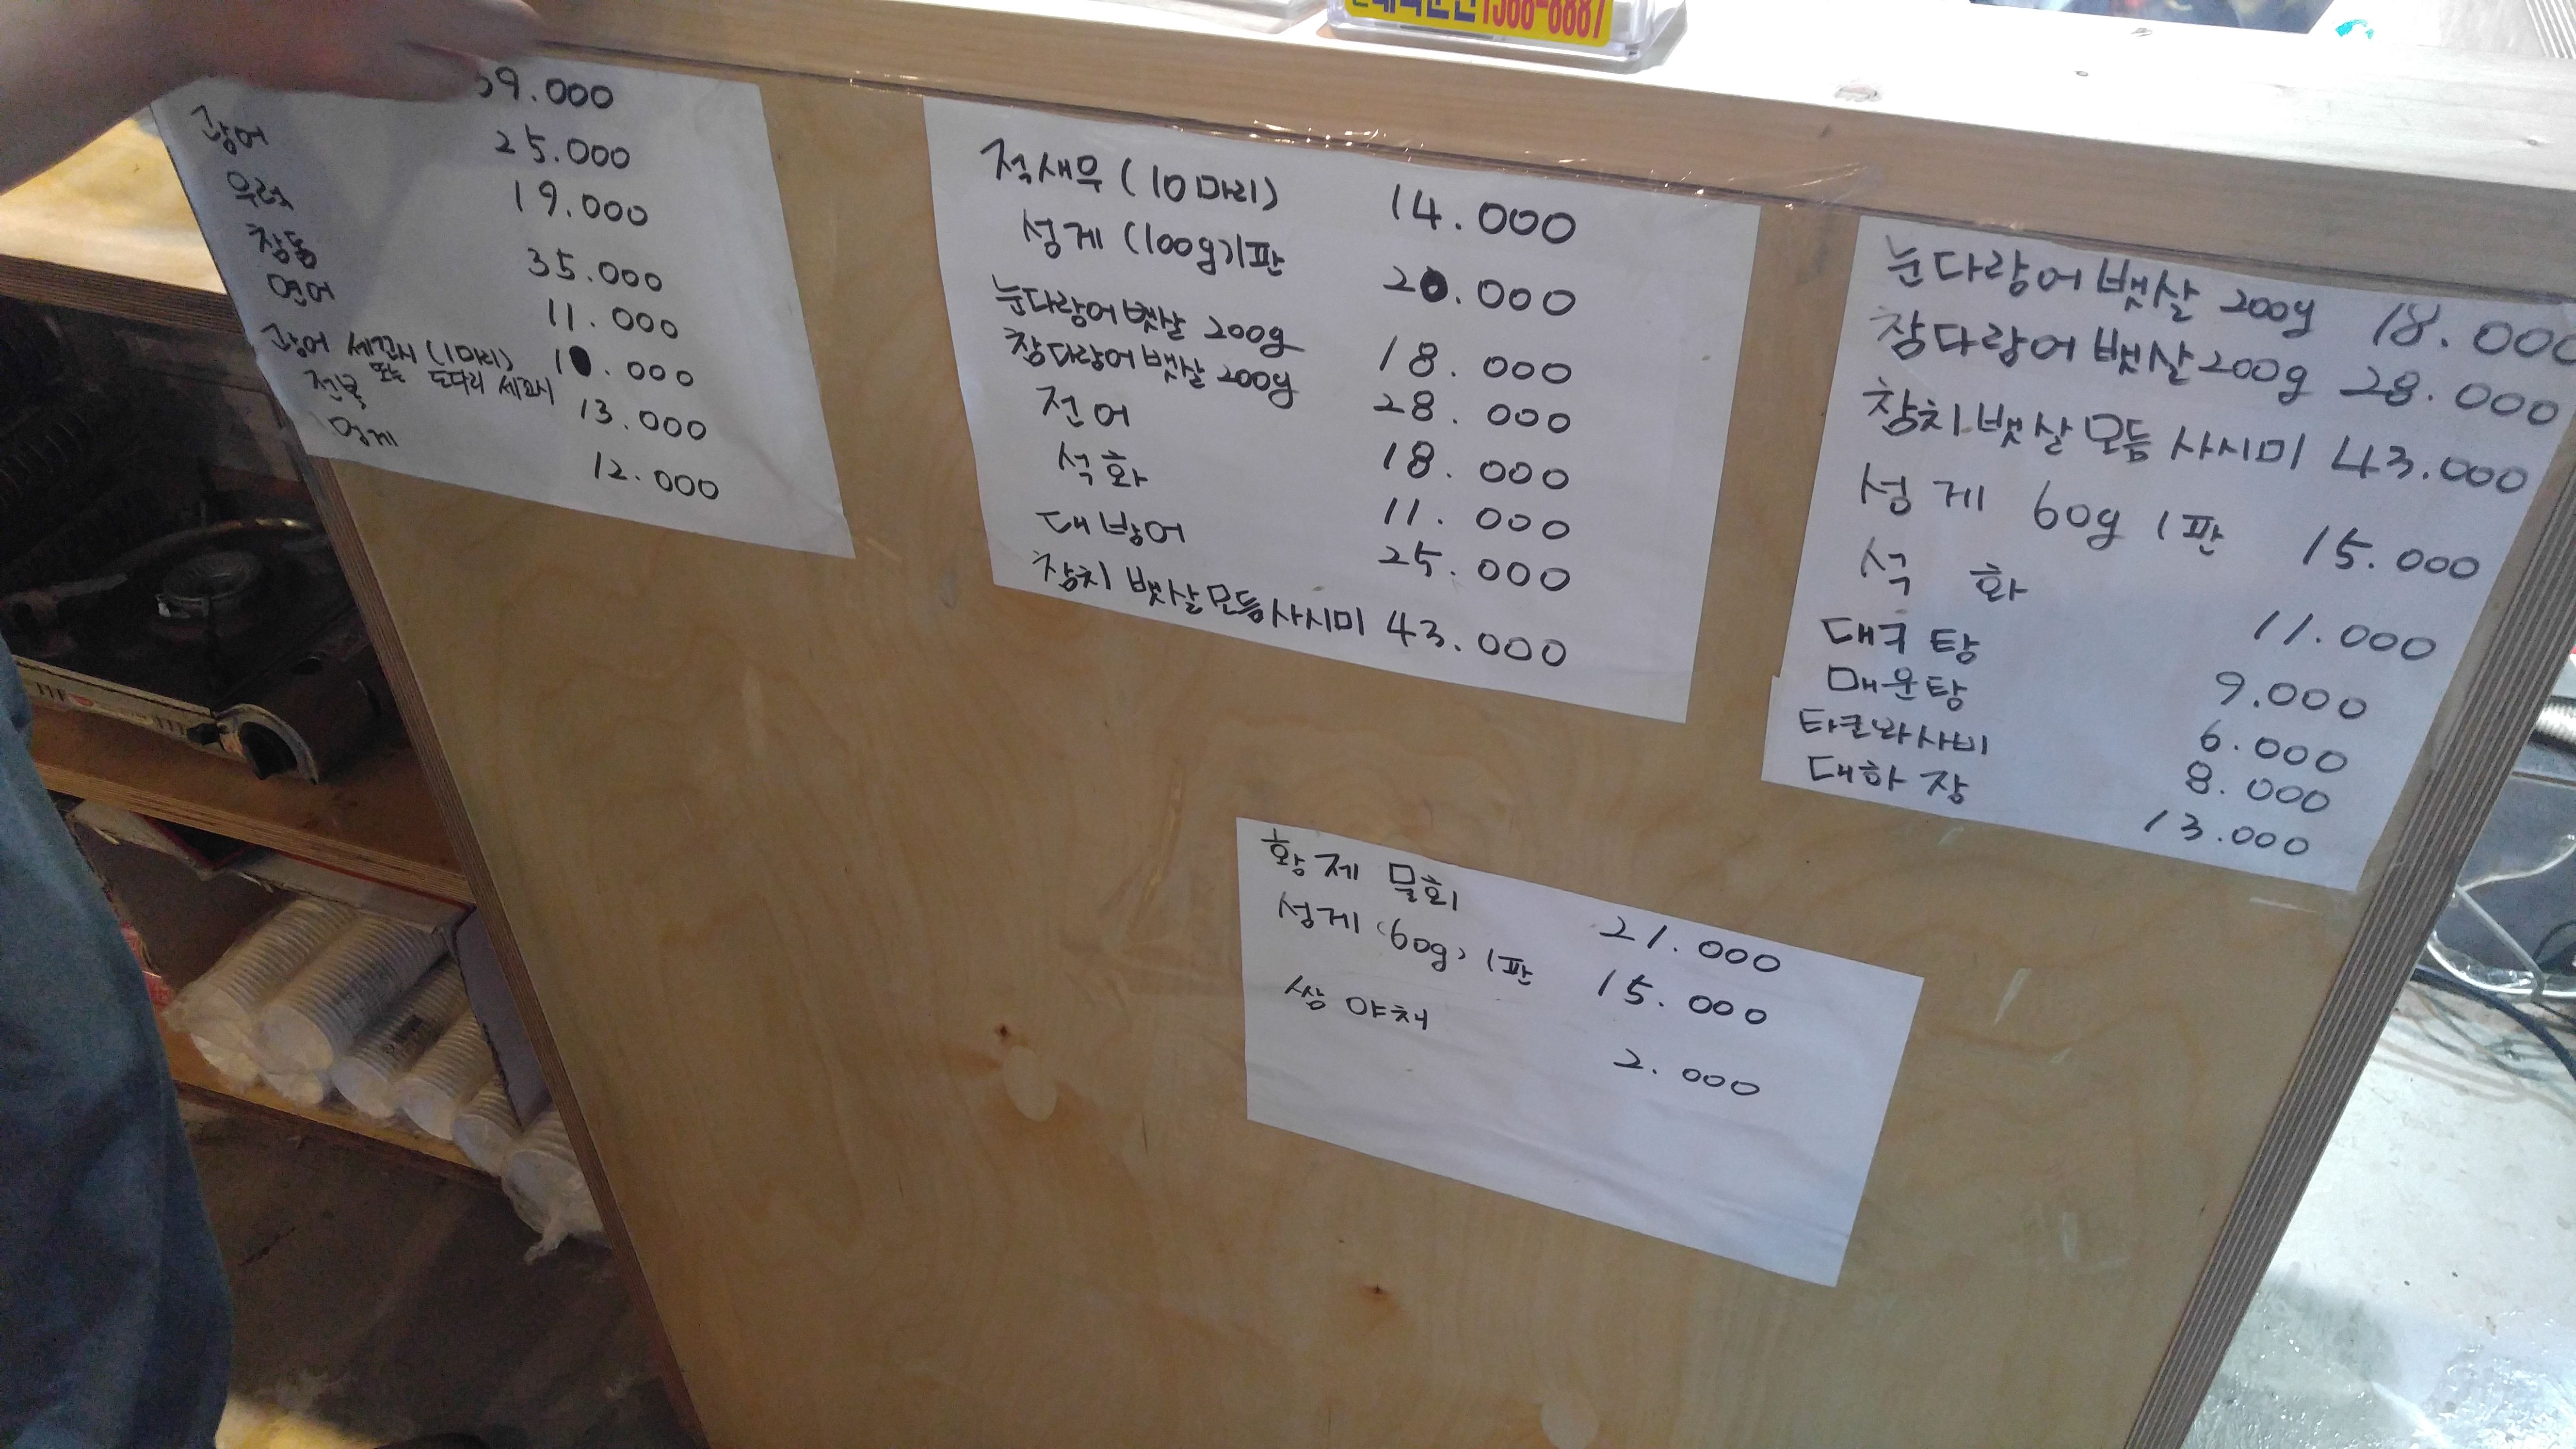 1566-8887
9.000
광어 25.000
우럭 19.000
참돔 35.000
연어 11.000
광어 세꼬시 (1마리) 10.000
또는 도다리 세꼬시
전복 13.000
멍게 12.000
적새우 (10마리) 14.000
성게 (100g)1판 20.000
눈다랑어뱃살 200g 18.000
참다랑어뱃살 200g 28.000
전어 18.000
석화 11.000
대방어 25.000
참치 뱃살모듬사시미 43.000
눈다랑어뱃살 200g 18.000
참다랑어뱃살200g 28.000
참치뱃살모듬 사시미 43.000
성게 60g 1판 15.000
석화 11.000
대구탕 9.000
매운탕 6.000
타코와사비 8.000
대하장 13.000
황제 물회 21.000
성게 (60g) 1판 15.000
쌈야채 2.000